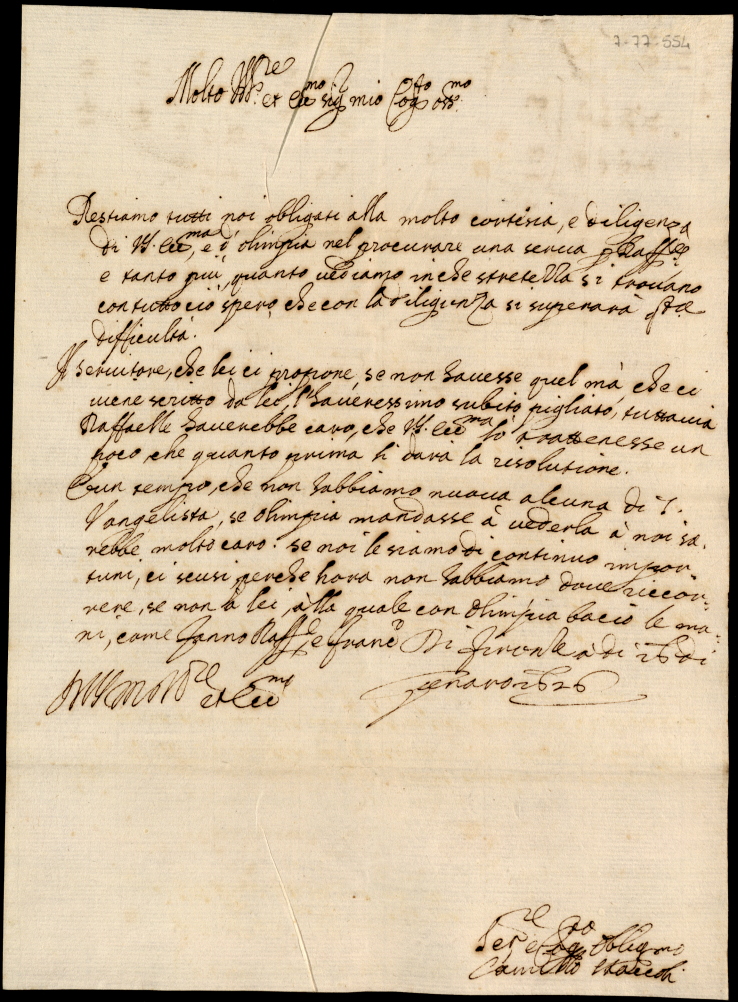 7-77-554
Molto Ill.re et Ecc.mo sig. mio Cog.to oss.mo
Restiamo tutti noi obligati alla molto cortesia, e diligenza
di V.S. Ecc.ma, e d'olimpia nel procurare una serua p Raff.lo
e tanto più, quanto uediamo in che strettezza si trouano
con tutto ciò spero, che con la diligenza si superarà q.ta
difficultà.
Il seruitore, che lei ci propone, se non hauesse quel mà, che ci
uiene scritto da lei, l'haueressimo subito pigliato, tuttauia
Raffaelle hauerebbe caro, che V.S. Ecc.ma lo trattenesse un
poco, che quanto prima li darà la risolutione.
È un tempo, che non habbiamo nuoua alcuna di S.
Vangelista, se olimpia mandasse à uederla à noi sa-
rebbe molto caro. se noi le siamo di continuo impor-
tuni, ci scusi perche hora non habbiamo doue riccor-
rere, se non à lei, alla quale con olimpia bacio le ma-
ni, come fanno Raff.e e Franc.o Di firenze à di 26 di
Genaro 1626
D V.S. Molto Ill.re et Ecc.ma
Ser.re et Cog.to Oblig.mo
Camillo Staccoli